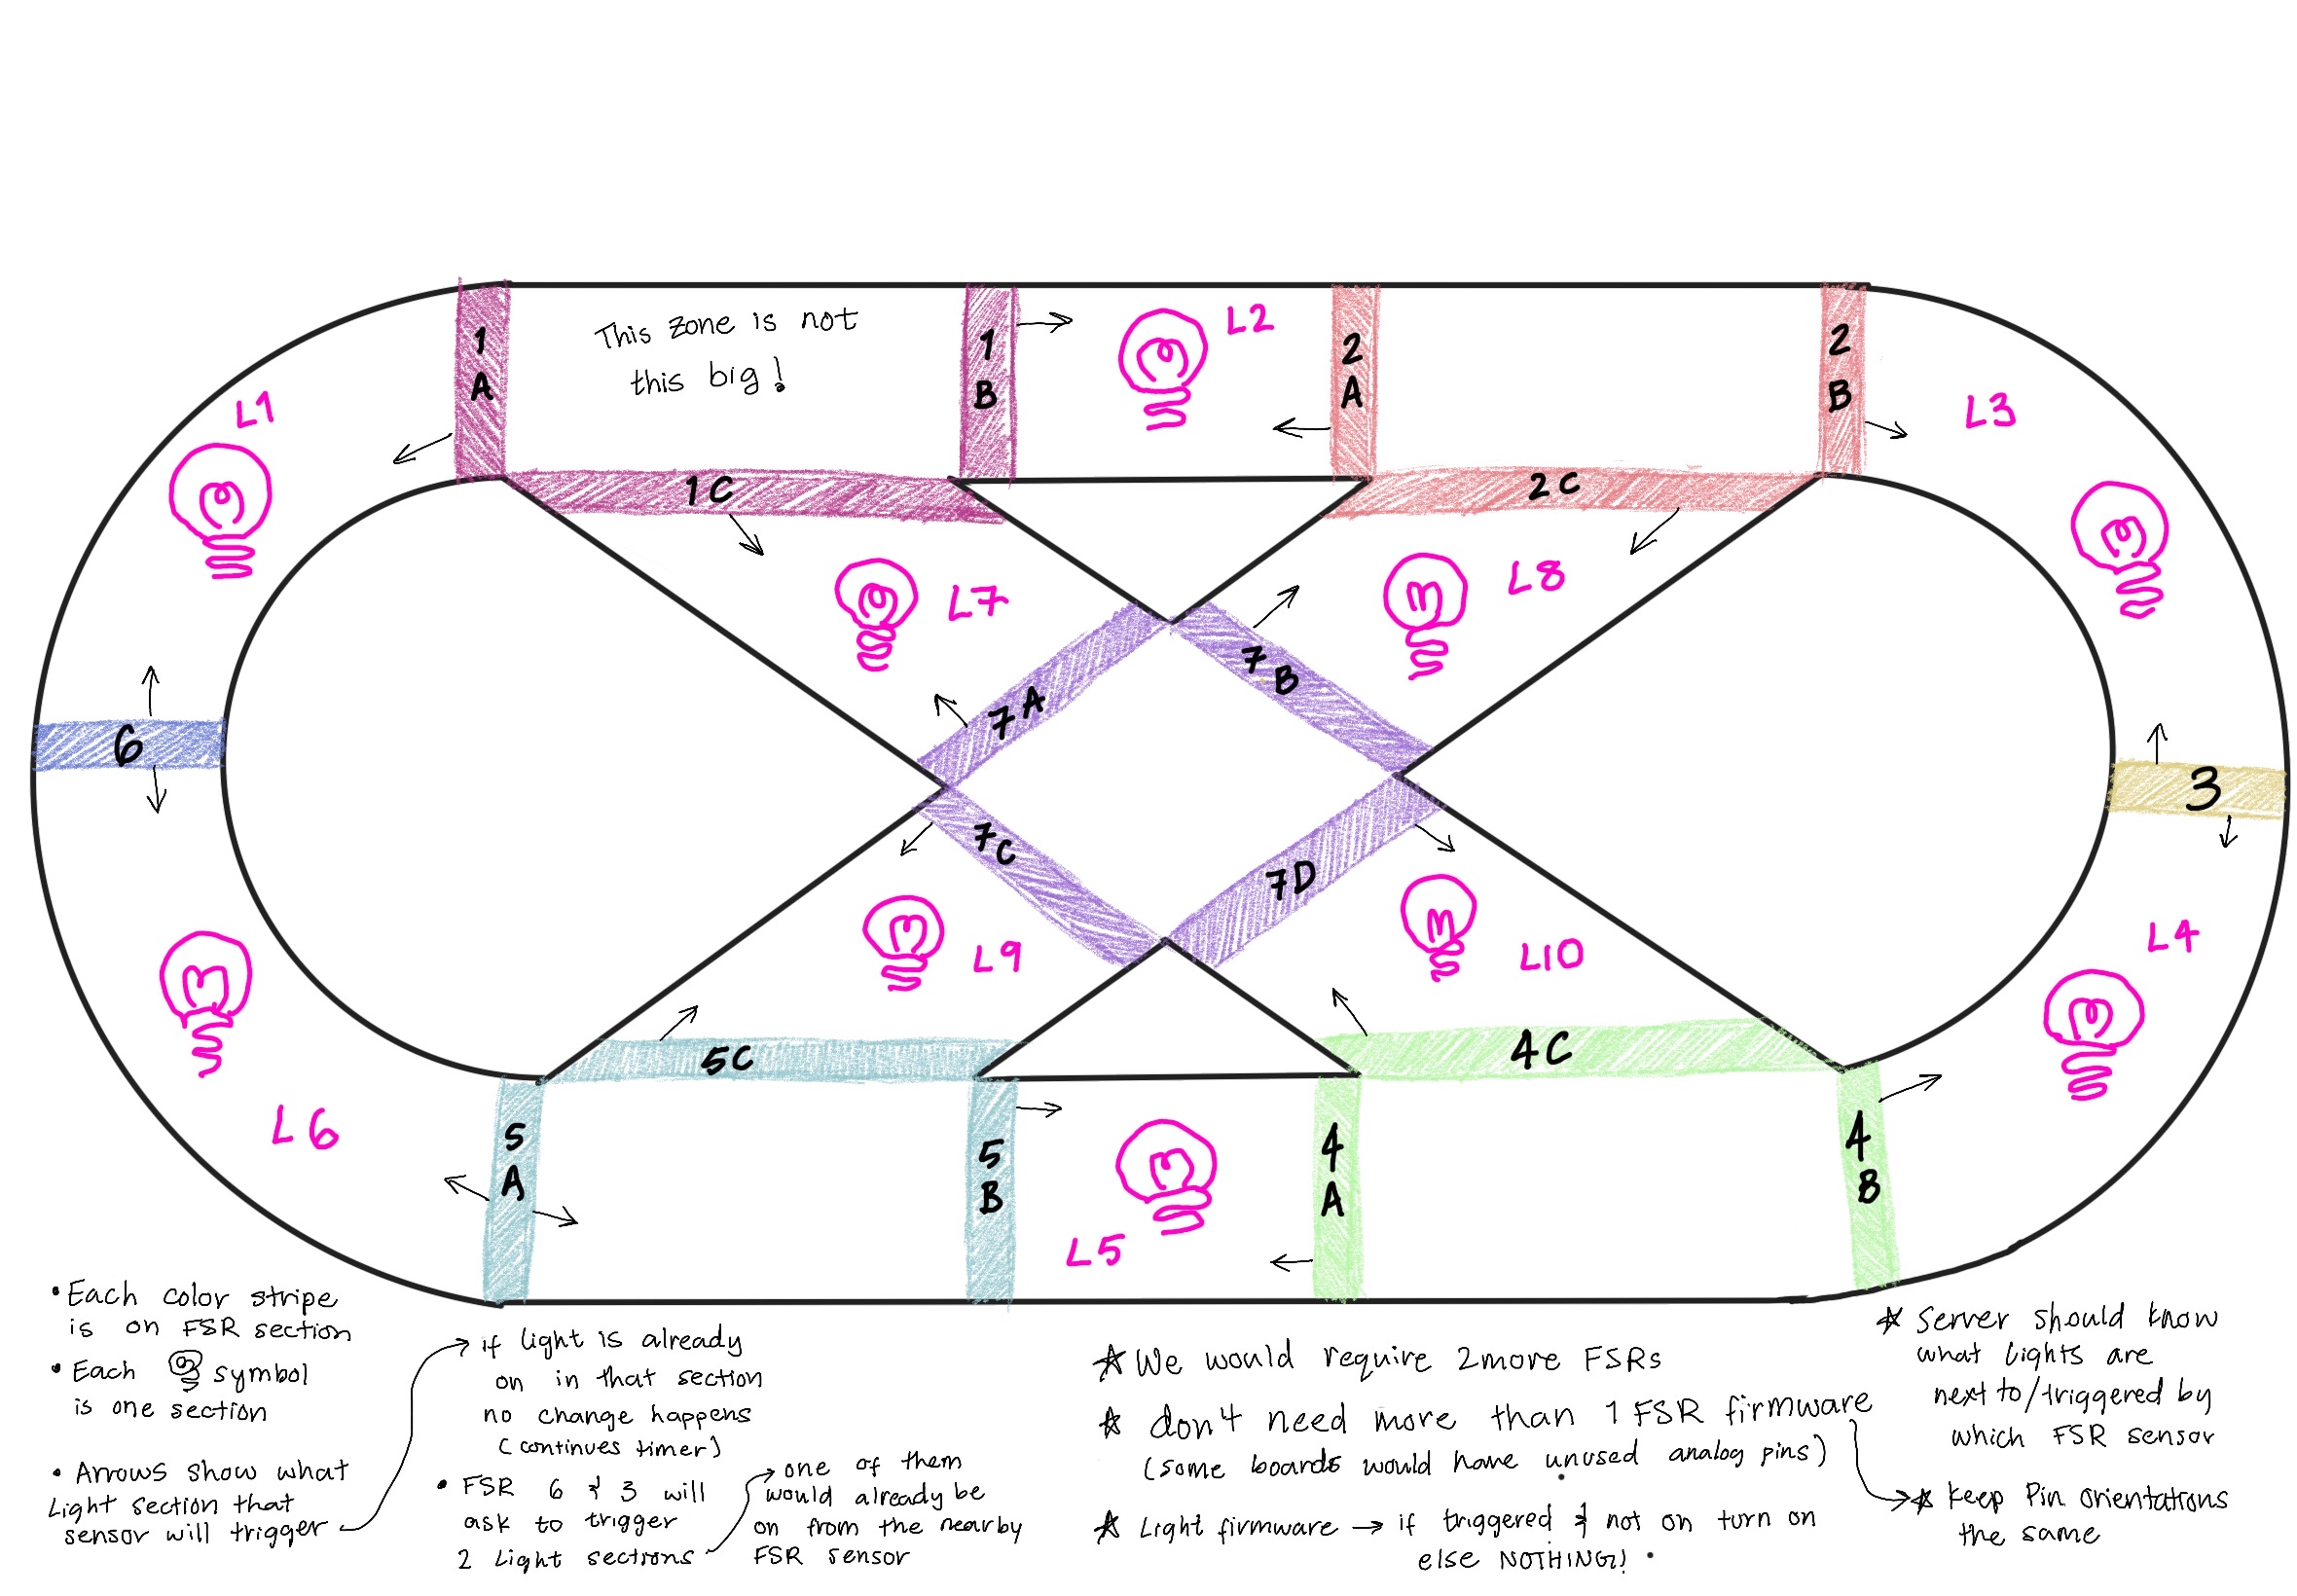 This zone is not
this big!
1
A
1
B
L2
2
A
2
B
L1
L3
1C
2C
L7
L8
7A
7B
6
3
7C
7D
L9
L10
L4
5C
4C
L6
5
A
5
B
L5
4
A
4
B
• Each color stripe
is on FSR section
• Each symbol
is one section
• Arrows show what
Light section that
sensor will trigger
if light is already
on in that section
no change happens
(continues timer)
• FSR 6 & 3 will
ask to trigger
2 Light sections
one of them
would already be
on from the nearby
FSR sensor
☆ We would require 2 more FSRs
☆ don't need more than 1 FSR firmware
(some boards would have unused analog pins)
☆ Light firmware → if triggered & not on turn on
else NOTHING!
☆ Server should know
what lights are
next to/triggered by
which FSR sensor
☆ Keep Pin orientations
the same